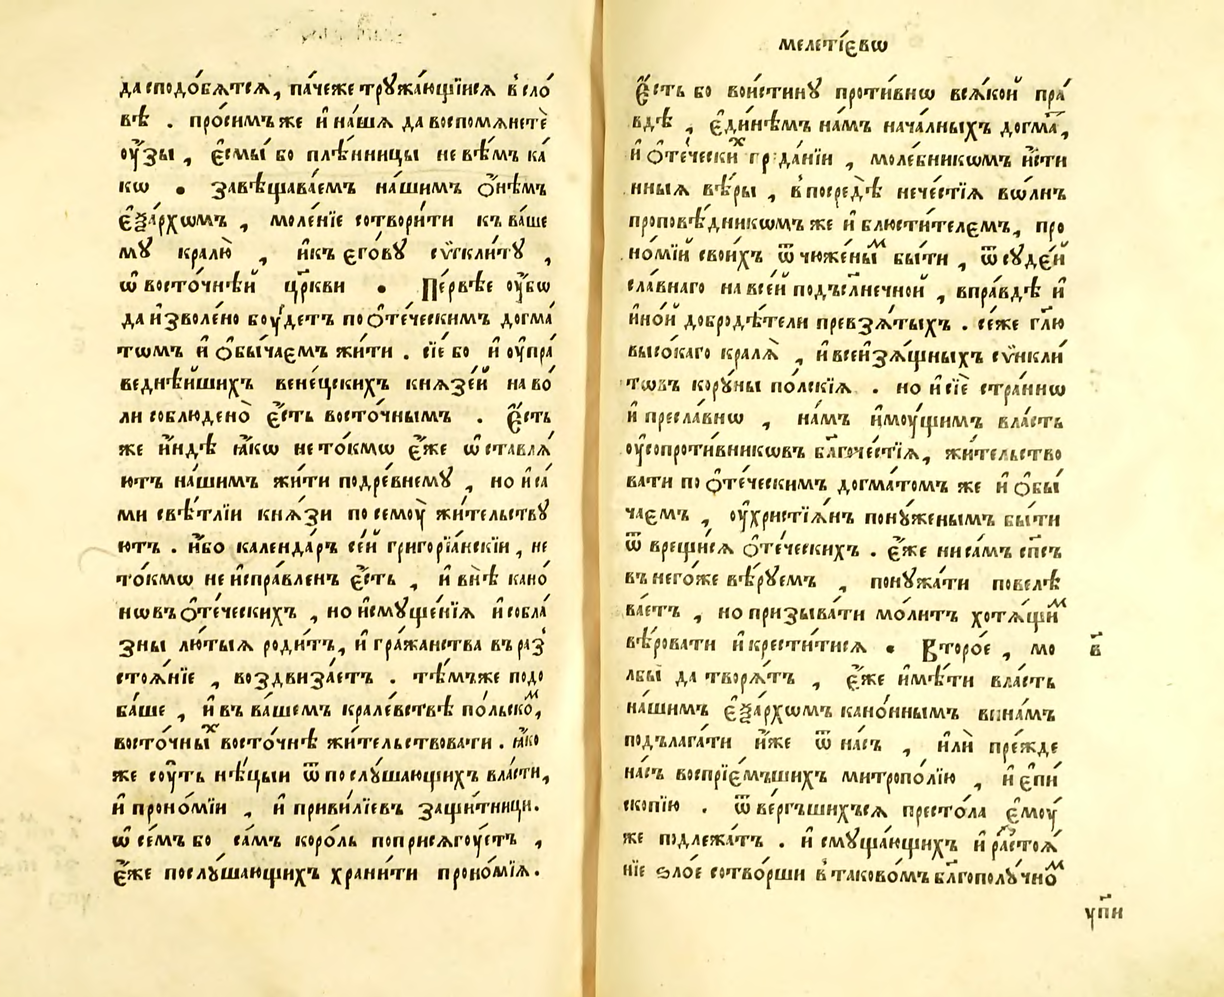 да сподо́бѧтсѧ, па́чеже трꙋжа́ющїисѧ в̾ сло́
вѣ . про́симъже и҆ на́шѧ да воспомѧнетѐ
оу҆́зы , є҆смы́ бо плѣ́нницы не вѣ́мъ ка́
кѡ . завѣщава́емъ на́шимъ ѻ҆́нѣмъ
є҆ѯа́рхѡмъ , моле́нїе сотвори́ти къ ва́ше
мꙋ кралю̀ , и҆къ є҆го́вꙋ сѵ́гкли́тꙋ ,
ѡ҆ восто́чнѣй цр҃кви . Пе́рвѣе оу҆́бѡ
да и҆зволе́но боу́детъ по ѻ҆те́ческимъ догма́
тѡмъ и҆ ѻ҆бы́чаємъ жи́ти . сїе́ бо и҆ оу҆пра́
веднѣ́йшихъ вене́цскихъ княѕе́й на во́
ли соблюдено̀ є҆́сть восто́чнымъ . Є҆́сть
же и҆́ндѣ ꙗ҆́кѡ не то́кмѡ є҆́же ѡ҆ставлѧ́
ютъ на́шимъ жи́ти подре́внемꙋ , но и҆ са́
ми свѣ́тлїи кнѧ́зи по семоу̀ жи́тельствꙋ
ютъ . и҆́бо календа́ръ се́й григорїа́нскїи , не
то́кмѡ не и҆спра́вленъ є҆́сть , и҆ внѣ̀ кано́
нѡвъ ѻ҆те́ческихъ , но и҆смꙋще́нїѧ и҆ собла́
зны лю́тыѧ роди́тъ, и҆ гра́жанства въ раз̾
стоѧ́нїе , воздвиза́етъ . тѣ́мъже подо
ба́ше , и҆ въ ва́шемъ кралевствѣ по́льскоⷨ,
восто́чныⷯ восто́чнѣ жи́тельствовати . ꙗ҆́ко
же соу́ть нѣ́цыи ѿ послꙋ́шающихъ вла́сти,
и҆ проно́мїи , и҆ приви́лїевъ защи́тници.
ѡ҆ се́мъ бо са́мъ коро́ль поприсѧгоу́етъ ,
є҆́же послꙋ́шающихъ храни́ти проно́мїѧ.
мелеті́евѡ
Є҆́сть бо вои́стинꙋ проти́внѡ всѧ́кой пра́
вдѣ , є҆ди́нѣмъ на́мъ нача́лныхъ догма́ⷮ,
и҆ ѻ҆те́ческиⷯ гр да́нїи , моле́бникѡмъ и҆́сти
нныѧ вѣ́ры , в̾посре́дѣ нече́стїѧ во́лнъ
проповѣ́дникѡмъ же и҆ блюсти́телемъ, про
но́мїй свои́хъ ѿчюже́ныⷨ бы́ти , ѿ сꙋде́й
сла́внаго на все́й подъсл҃нечной , впра́вдѣ и҆
и҆но́й добродѣ́тели превзѧ́тыхъ . се́же гл҃ю
высо́каго кралѧ̀ , и҆ всеи҆зѧ́щныхъ сѵ́нкли́
товъ корꙋ́ны по́лскїѧ . но и҆ сїѐ стра́ннѡ
и҆ пресла́внѡ , на́мъ и҆моу́щимъ вла́сть
оу҆сопроти́вникѡвъ бл҃гоче́стїѧ, жи́тельство
вати по ѻ҆те́ческимъ догма́томъ же и҆ ѻ҆бы́
чаємъ , оу҆христїѧ́нъ понꙋ́женымъ бы́ти
ѿврещи́сѧ ѻ҆те́ческихъ . є҆́же ни са́мъ сп҃съ
въ него́же вѣ́рꙋемъ , понꙋжа́ти повелѣ
ва́етъ , но призыва́ти мо́литъ хотѧ́щиⷨ
вѣ́ровати и҆ крести́тисѧ . Второ́е , мо
в҃
лбы̀ да творѧ́тъ , є҆́же и҆мѣ́ти вла́сть
на́шимъ є҆ѯа́рхѡмъ кано́ннымъ вина́мъ
подълага́ти и҆́же ѿ на́съ , и҆лѝ пре́жде
на́съ воспрїє́мъшихъ митропо́лїю , и҆ є҆пи́
скопїю . ѿ ве́ргъшихъсѧ престо́ла є҆моу́
же подлежа́тъ . и҆ смꙋща́ющихъ и҆ ра́стоѧ́
нїе ѕло́е сотво́рши в̾ таково́мъ бл҃гополꙋ́чноⷨ
ꙋпи